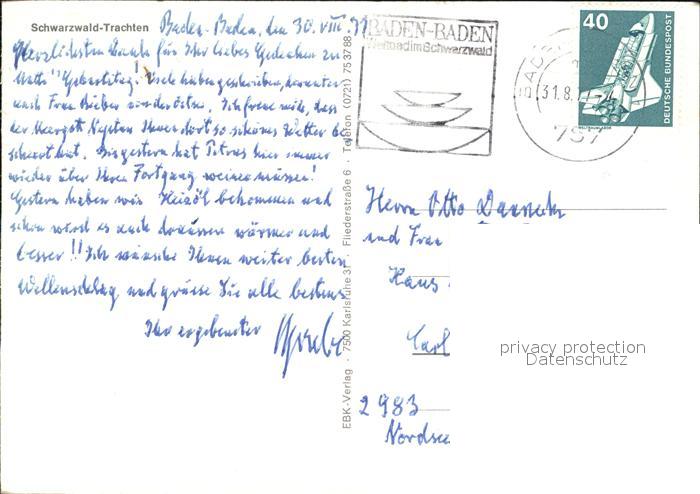 Schwarzwald-Trachten
Baden-Baden, den 30. VIII
Herzlichsten Dank für Ihr liebes Gedenken zu
Geburtstag! Viele haben geschrieben, darunter
auch Frau Bieber von der Ostsee. Ich freue mich, dass
der Meergott Neptun Ihnen dort so schönes Wetter be
schert hat. Bis gestern hat Petrus hier immer
wieder über Ihren Fortgang weinen müssen!
Gestern haben wir Heizöl bekommen und
schon wird es auch draussen wärmer und
besser!! Ich wünsche Ihnen weiter besten
Wellenschlag und grüsse Sie alle bestens
Ihr ergebenster
EBK-Verlag · 7500 Karlsruhe 31 · Fliederstraße 6 · Telefon (0721) 753788
BADEN-BADEN
Weltbad im Schwarzwald
31.8.
757
40
DEUTSCHE BUNDESPOST
WELTRAUMLABOR
Herrn Otto
und Frau
Haus
Carl
2983
Nordsee
privacy protection
Datenschutz